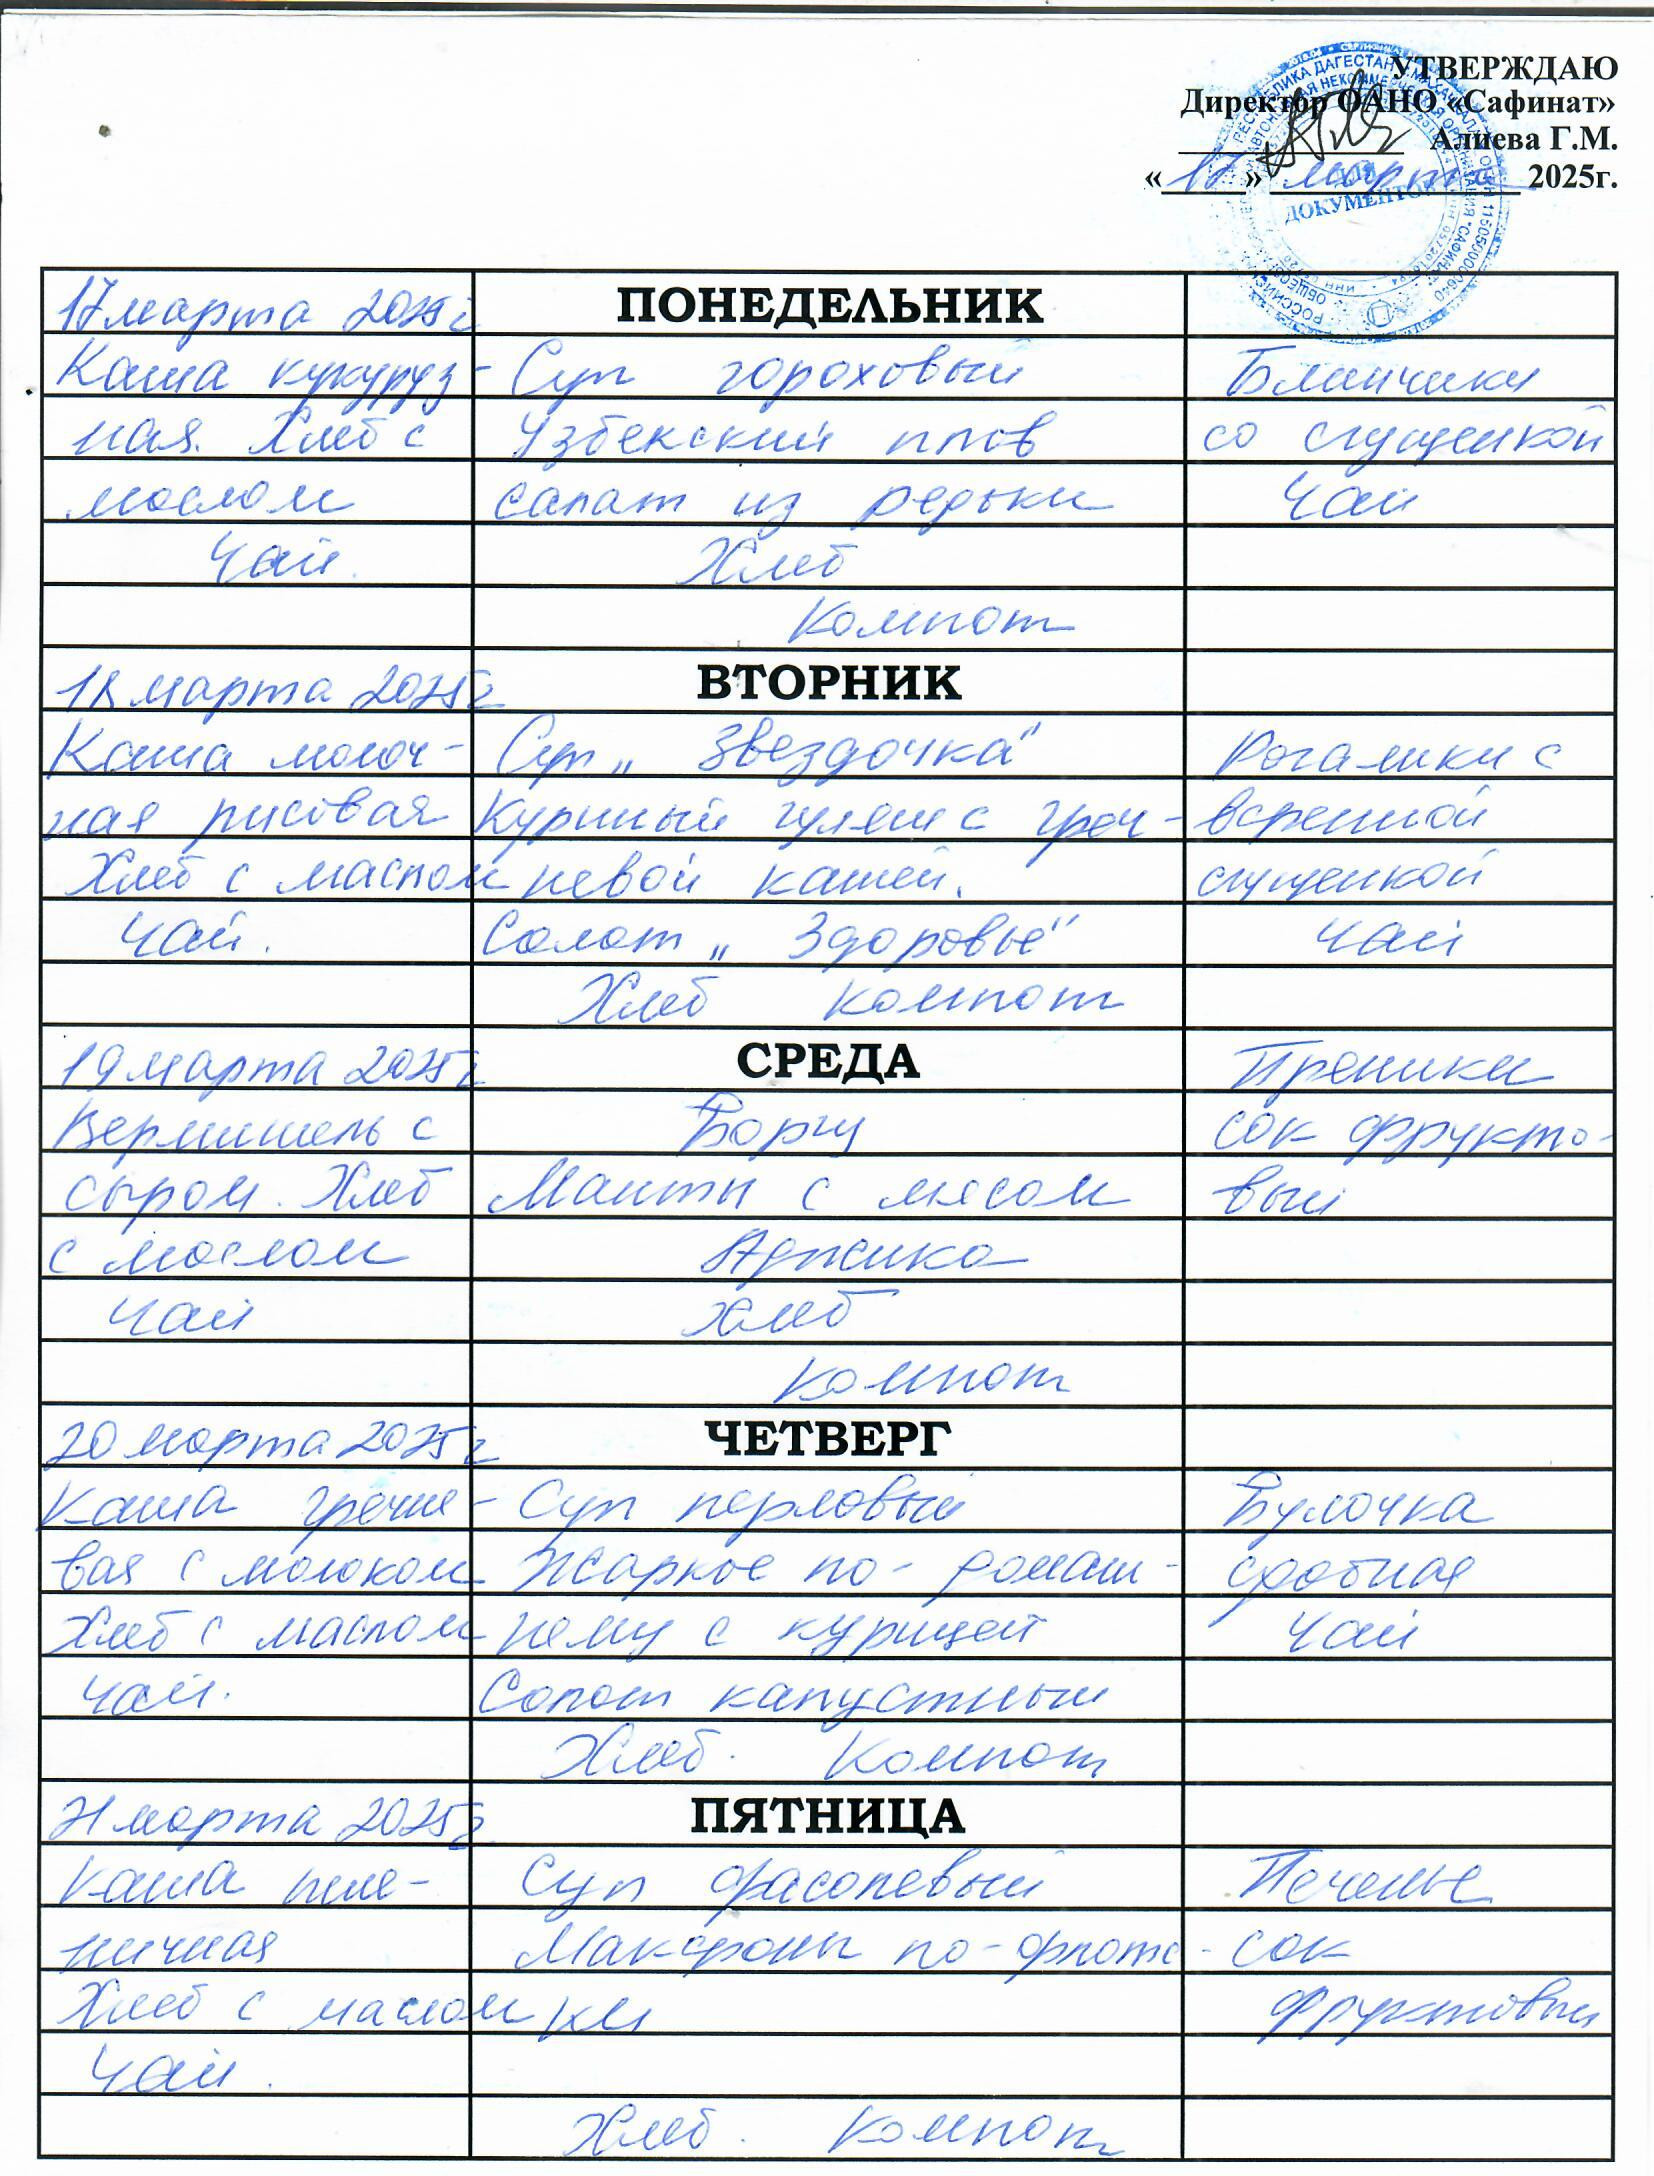 УТВЕРЖДАЮ
Директор ОАНО «Сафинат»
Алиева Г.М.
«17» марта 2025г.
ДЛЯ ДОКУМЕНТОВ
17 марта 2025г ПОНЕДЕЛЬНИК
Каша кукуруз- Суп гороховый Блинчики
ная. Хлеб с Узбекский плов со сгущенкой
маслом салат из редьки Чай
Чай. Хлеб
Компот
18 марта 2025г ВТОРНИК
Каша молоч- Суп „Звездочка" Рогалики с
ная рисовая Куриный гуляш с греч- вареной
Хлеб с маслом невой кашей. сгущенкой
Чай. Салат „Здоровье" Чай
Хлеб Компот
19 марта 2025г СРЕДА Пряники
Вермишель с Борщ сок фрукто-
сыром. Хлеб Манты с мясом вый
с маслом Аджика
Чай Хлеб
Компот
20 марта 2025г ЧЕТВЕРГ
Каша гречне- Суп перловый Булочка
вая с молоком Жаркое по-домаш- сдобная
Хлеб с маслом нему с курицей Чай
Чай. Салат капустный
Хлеб. Компот
21 марта 2025г ПЯТНИЦА
Каша пше- Суп фасолевый Печенье
ничная Макароны по-флотс- сок
Хлеб с маслом ки фруктовый
Чай.
Хлеб. Компот